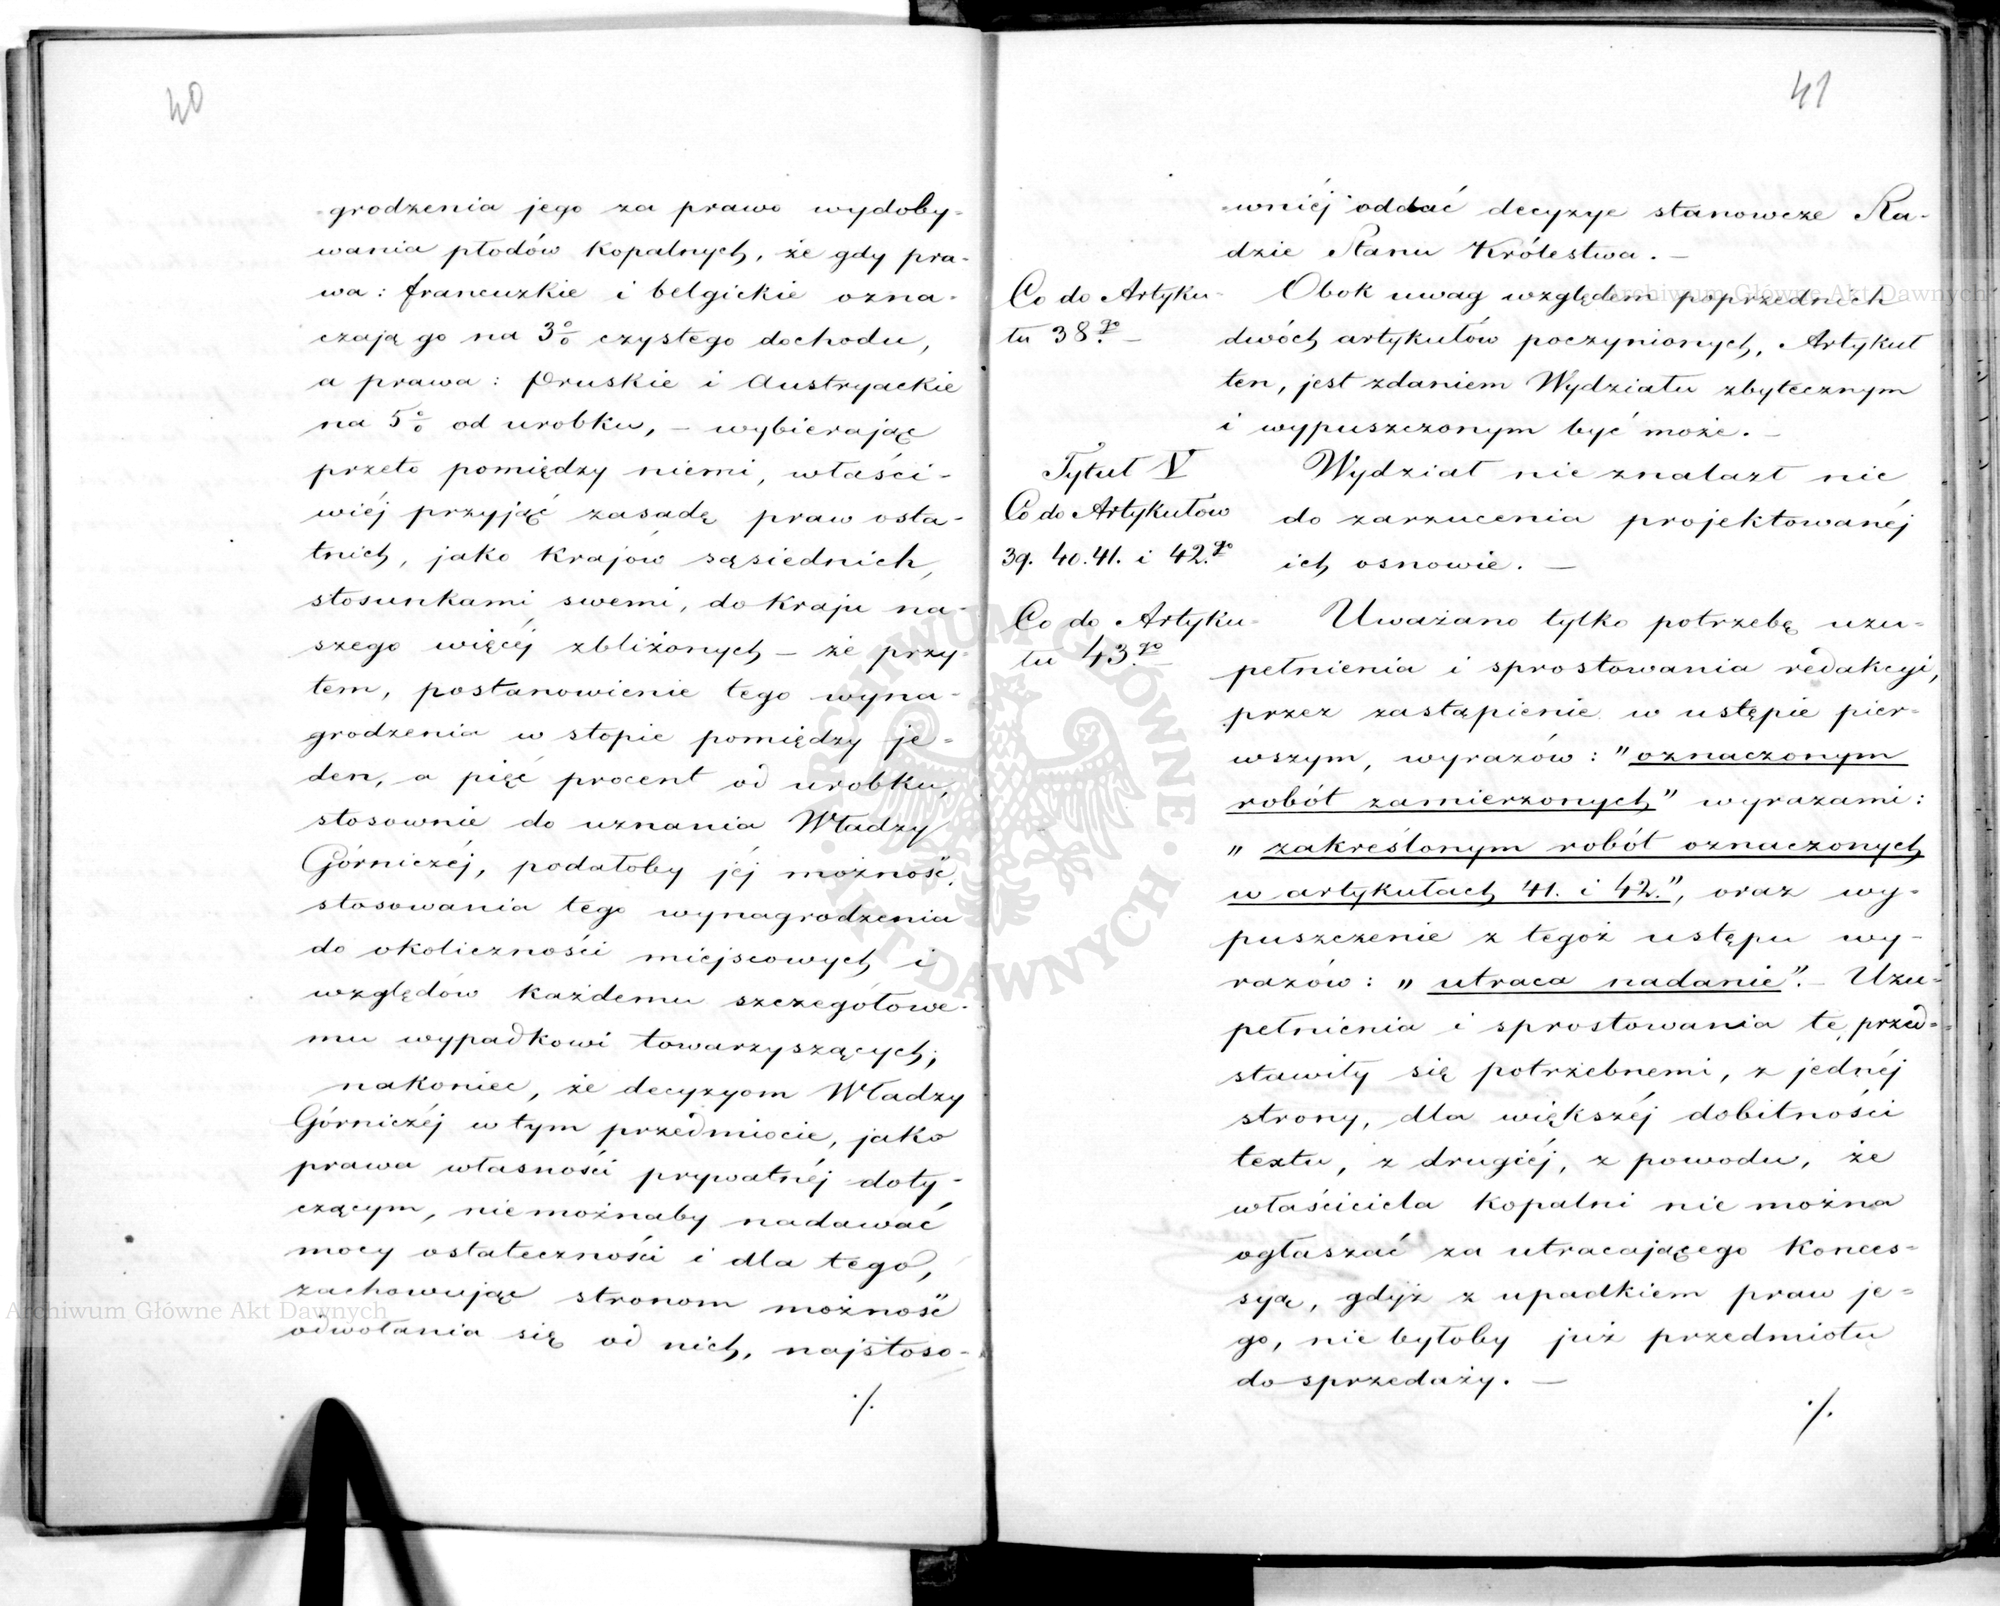 40
grodzenia jego za prawo wydoby-
wania płodów kopalnych, że gdy pra-
wa: francuzkie i belgickie ozna-
czają go na 3% czystego dochodu,
a prawa: Pruskie i Austryackie
na 5% od urobku, – wybierając
przeto pomiędzy niemi, właści-
wiéj przyjąć zasadę praw osta-
tnich, jako krajów sąsiednich,
stosunkami swemi, do kraju na-
szego więcéj zbliżonych – że przy-
tem, postanowienie tego wyna-
grodzenia w stopie pomiędzy je-
den, a pięć procent od urobku,
stosownie do uznania Władzy
Górniczéj, podałoby jéj możność
stosowania tego wynagrodzenia
do okoliczności miejscowych i
względów każdemu szczegółowe-
mu wypadkowi towarzyszących;
nakoniec, że decyzyom Władzy
Górniczéj w tym przedmiocie, jako
prawa własności prywatnéj doty-
czącym, nie możnaby nadawać
mocy ostateczności i dla tego,
zachowując stronom możność
odwołania się od nich, najstoso-
./.
41
wniéj oddać decyzye stanowcze Ra-
dzie Stanu Królestwa. –
Co do Artyku-
łu 38.go –
Obok uwag względem poprzednich
dwóch artykułów poczynionych, Artykuł
ten, jest zdaniem Wydziału zbytecznym
i wypuszczonym być może. –
Tytuł V
Co do Artykułów
39. 40. 41. i 42.go
Wydział nie znalazł nic
do zarzucenia projektowanéj
ich osnowie. –
Co do Artyku-
łu 43.go
Uważano tylko potrzebę uzu-
pełnienia i sprostowania redakcyi,
przez zastąpienie w ustępie pier-
wszym, wyrazów: "oznaczonym
robót zamierzonych" wyrazami:
"zakreślonym robót oznaczonych
w artykułach 41. i 42.", oraz wy-
puszczenie z tegoż ustępu wy-
razów: "utraca nadanie". – Uzu-
pełnienia i sprostowania te, przed-
stawiły się potrzebnemi, z jednéj
strony, dla większéj dobitności
textu, z drugiéj, z powodu, że
właściciela kopalni nie można
ogłaszać za utracającego konces-
syą, gdyż z upadkiem praw je-
go, nie byłoby już przedmiotu
do sprzedaży. –
./.
Archiwum Główne Akt Dawnych
Archiwum Główne Akt Dawnych
ARCHIWUM GŁÓWNE · AKT DAWNYCH ·